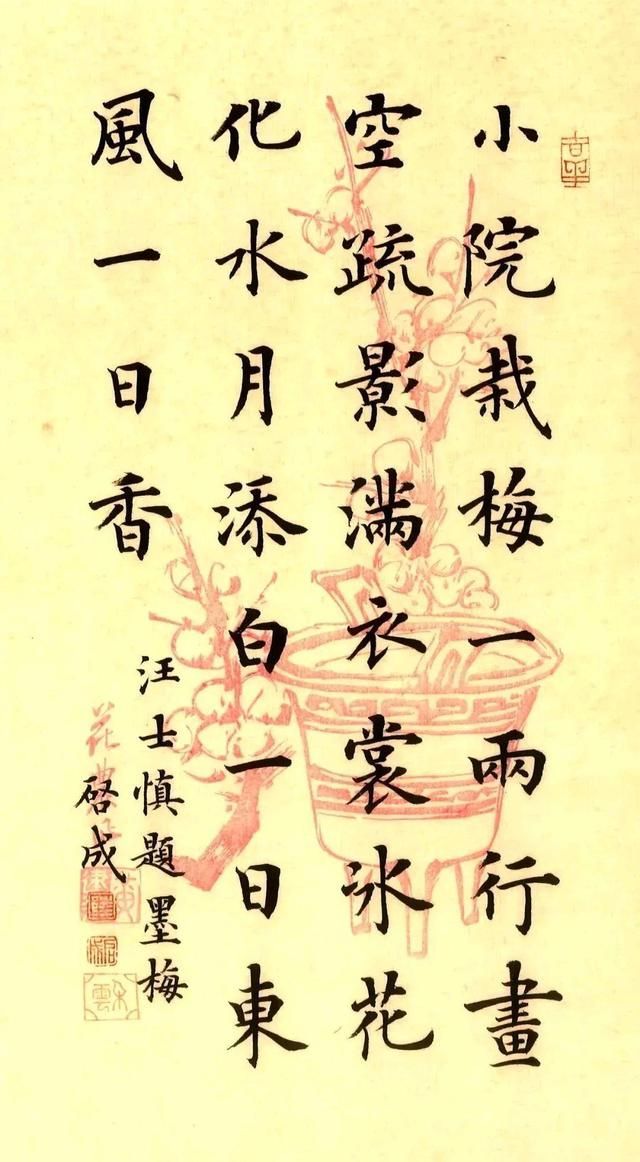 小院栽梅一兩行畫
空疏影滿衣裳冰花
化水月添白一日東
風一日香
汪士慎題墨梅
啓成